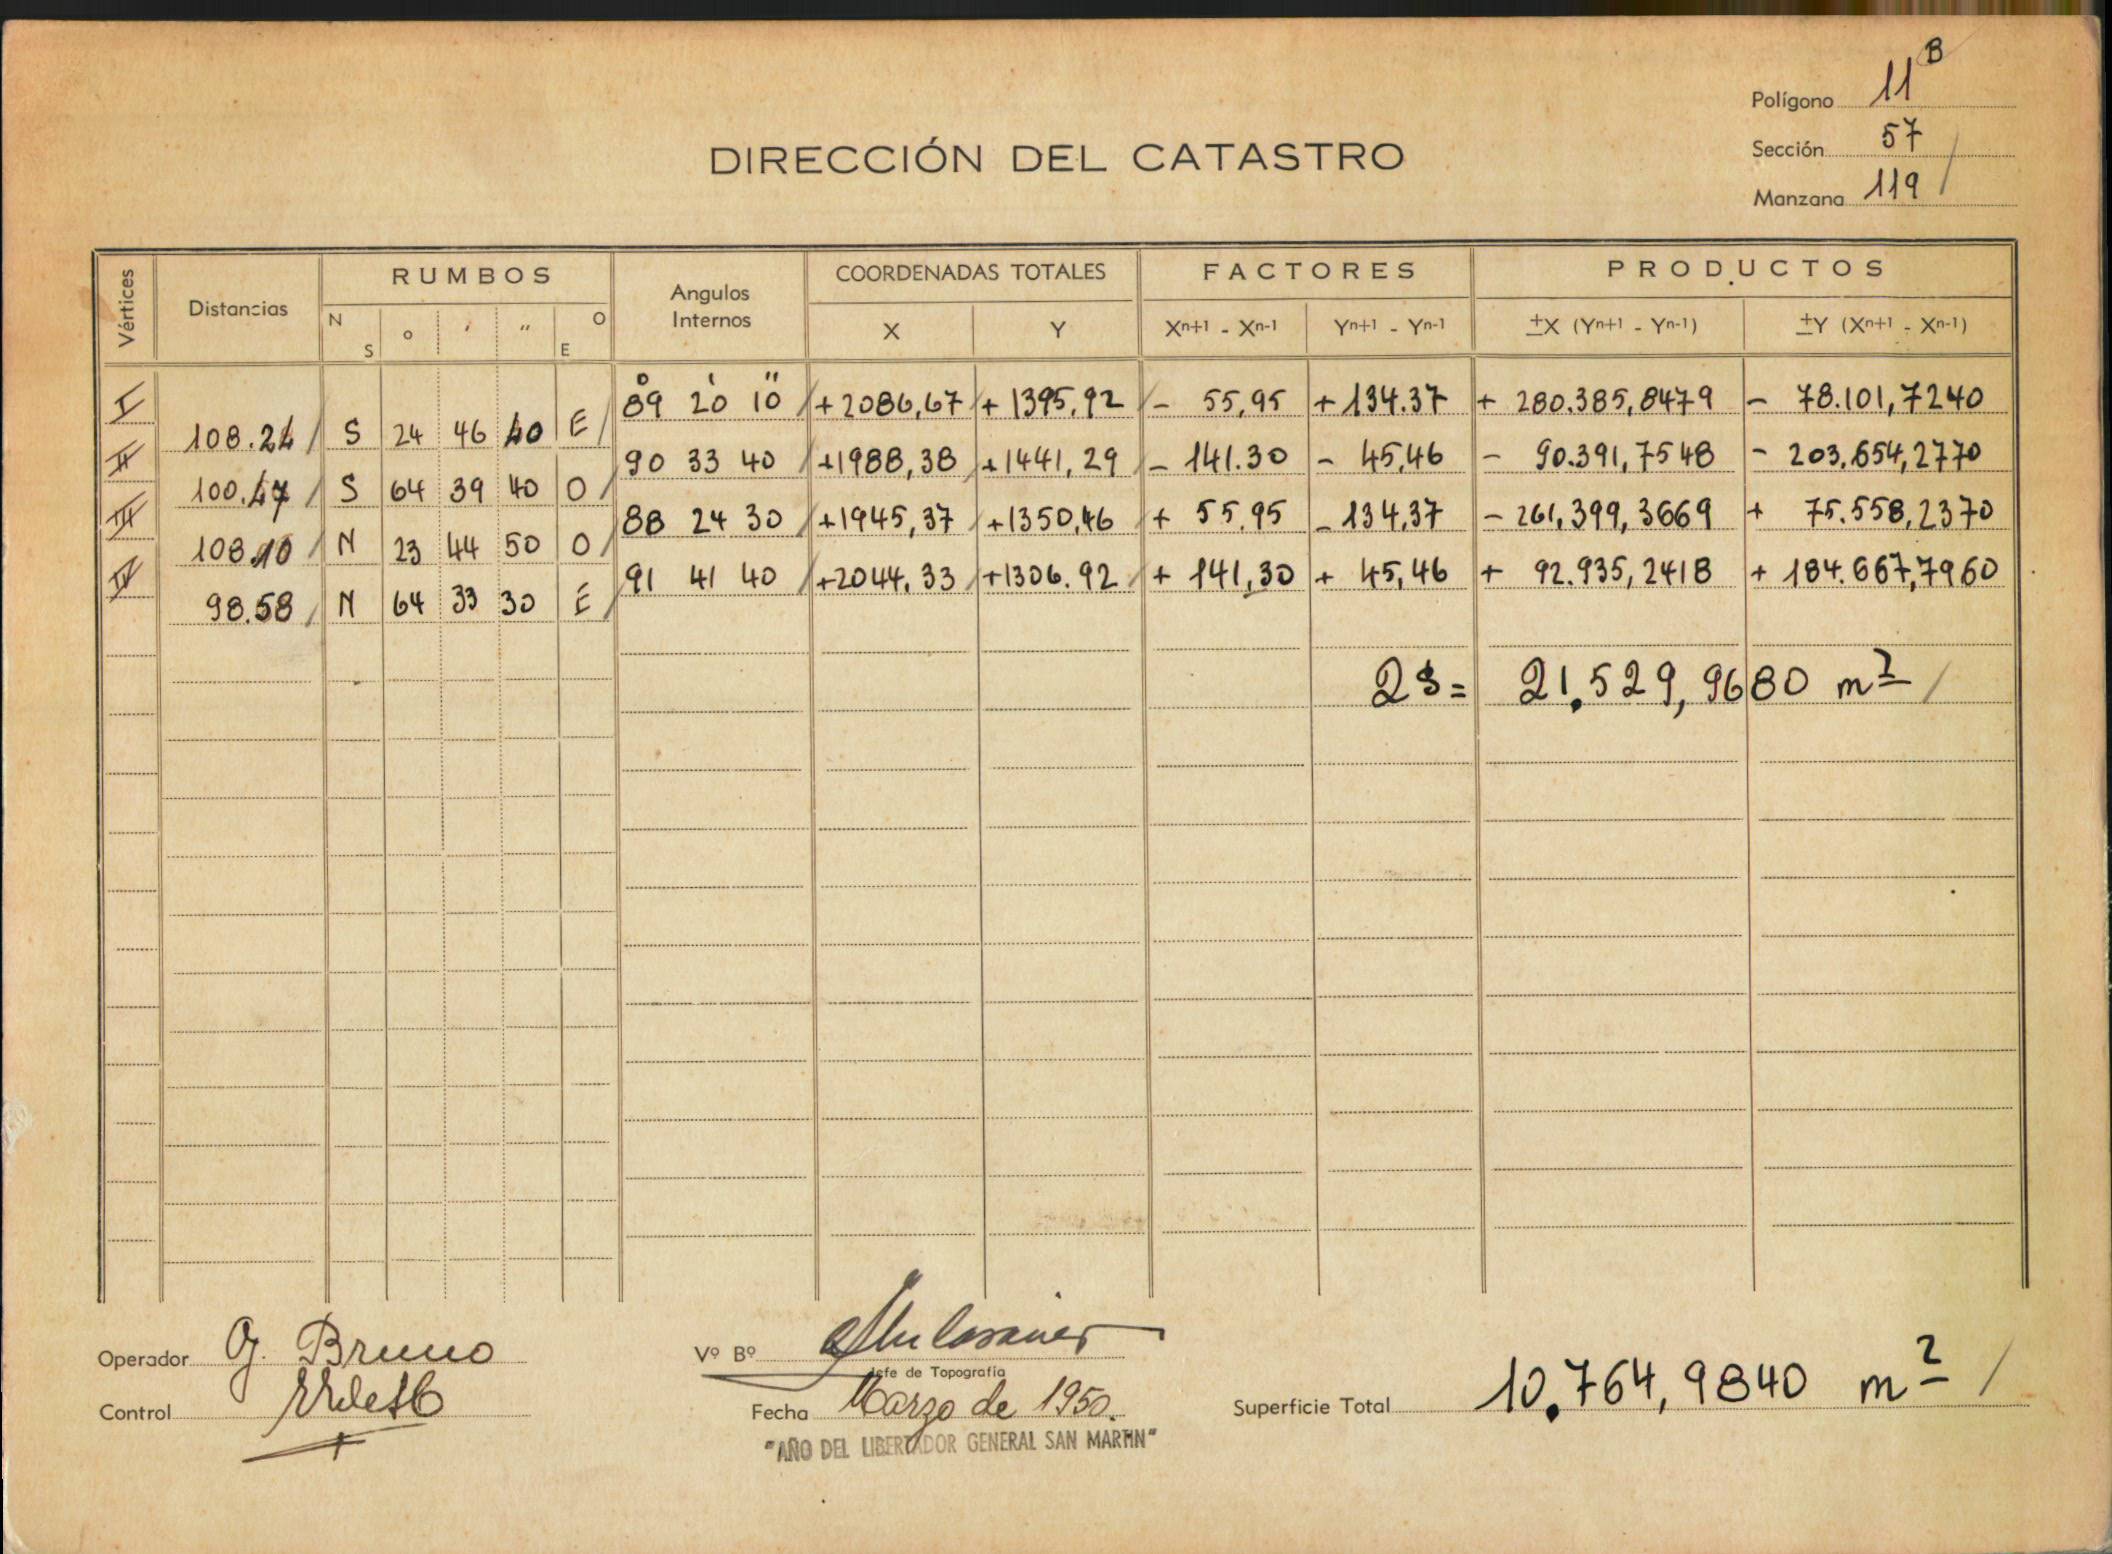 Polígono 11 B
Sección 57
Manzana 119
DIRECCIÓN DEL CATASTRO
Vértices Distancias RUMBOS Angulos Internos COORDENADAS TOTALES FACTORES PRODUCTOS
N S ° ' " O E X Y Xn+1 - Xn-1 Yn+1 - Yn-1 ±X (Yn+1 - Yn-1) ±Y (Xn+1 - Xn-1)
I 89° 20' 10" +2086,67 + 1395,92 - 55,95 + 134.37 + 280.385,8479 - 78.101,7240
108.24 S 24 46 40 E
II 90 33 40 +1988,38 +1441,29 - 141.30 - 45,46 - 90.391,7548 - 203.654,2770
100.47 S 64 39 40 O
III 88 24 30 +1945,37 +1350,46 + 55,95 - 134,37 - 261,399,3669 + 75.558,2370
108.10 N 23 44 50 O
IV 91 41 40 +2044,33 +1306.92 + 141,30 + 45,46 + 92.935,2418 + 184.667,7960
98.58 N 64 33 30 E
2S = 21.529,9680 m2
Operador Bruno
Control
Vº Bº
Jefe de Topografía
Fecha Marzo de 1950.
"AÑO DEL LIBERTADOR GENERAL SAN MARTIN"
Superficie Total 10.764,9840 m2